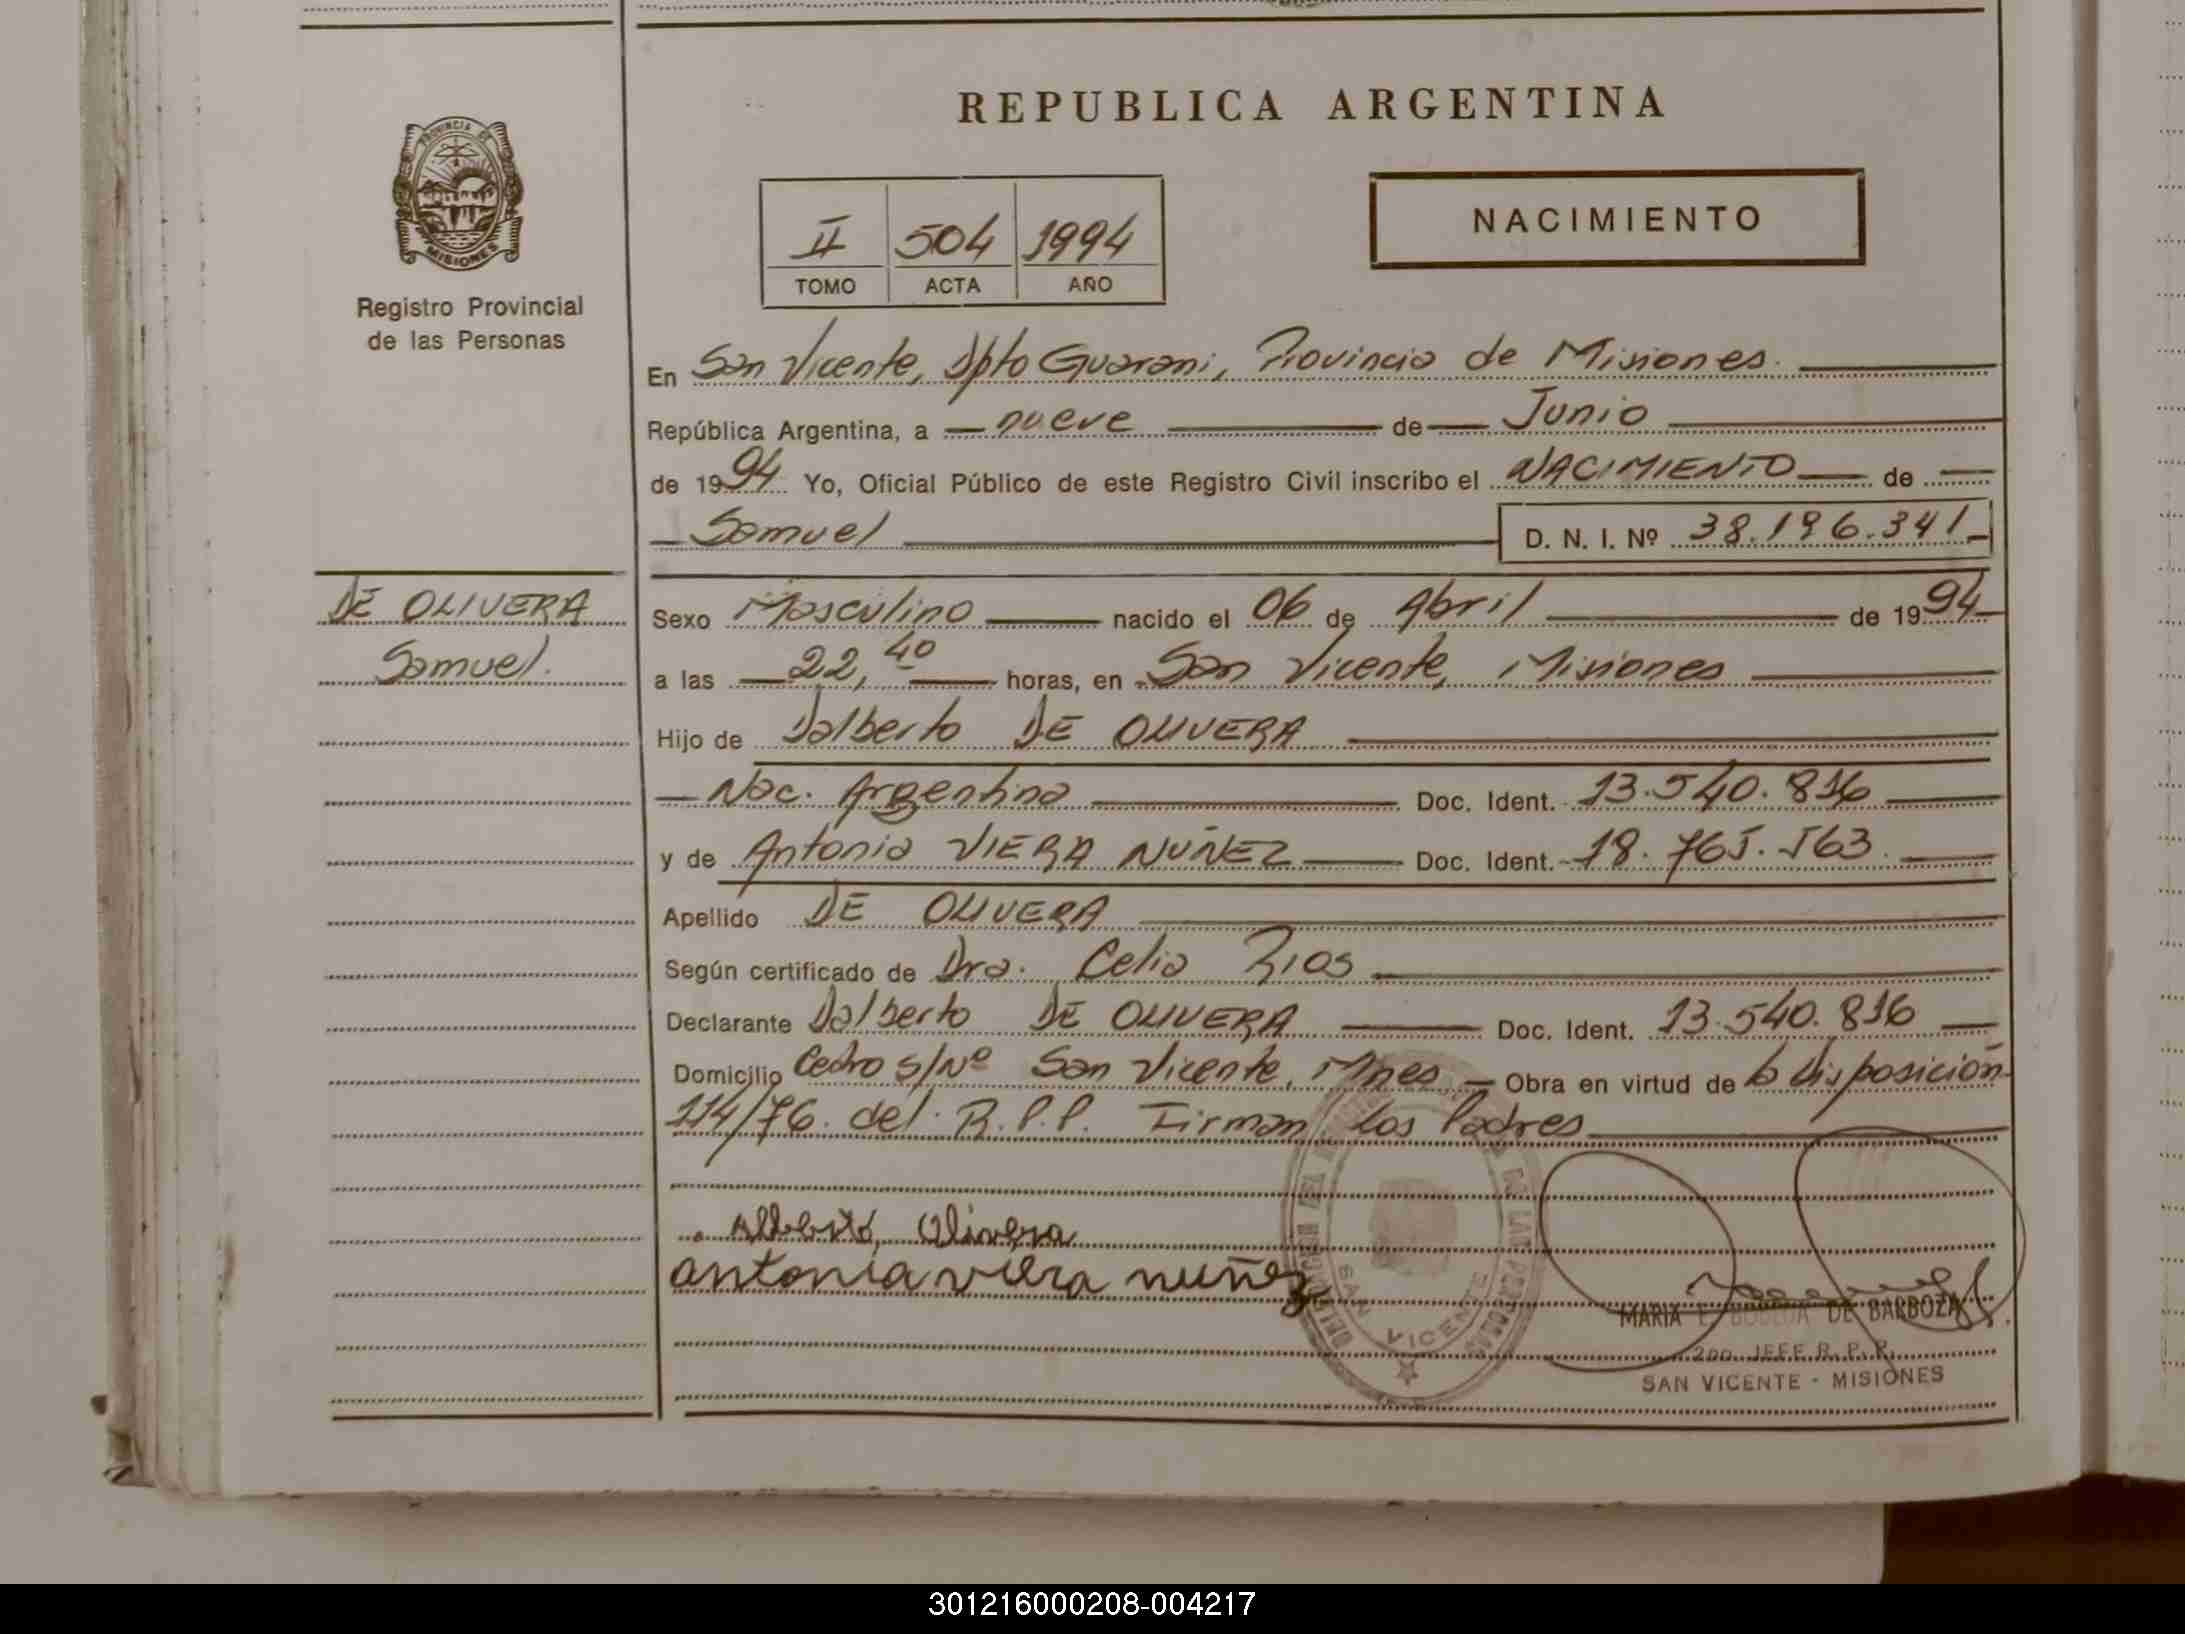 REPUBLICA ARGENTINA
PROVINCIA DE
MISIONES
Registro Provincial
de las Personas
II 504 1994
TOMO ACTA AÑO
NACIMIENTO
En San Vicente, Dpto Guarani, Provincia de Misiones.
República Argentina, a nueve de Junio
de 1994 Yo, Oficial Público de este Registro Civil inscribo el NACIMIENTO de
Samuel D. N. I. Nº 38.196.341
DE OLIVERA
Samuel.
Sexo Masculino nacido el 06 de Abril de 1994
a las 22,40 horas, en San Vicente, Misiones
Hijo de Dalberto DE OLIVERA
Nac. Argentina Doc. Ident. 13.540.816
y de Antonia VIERA NUÑEZ Doc. Ident. 18.765.563
Apellido DE OLIVERA
Según certificado de Dra. Celia Rios
Declarante Dalberto DE OLIVERA Doc. Ident. 13.540.816
Domicilio Cedro s/Nº San Vicente, Mnes Obra en virtud de la disposición
114/76. del R.P.P. Firman los Padres
Alberto Olivera
antonia viera nuñez
SAN VICENTE
MARIA E. DE BARBOZA
2do. JEFE R. P. P.
SAN VICENTE - MISIONES
301216000208-004217